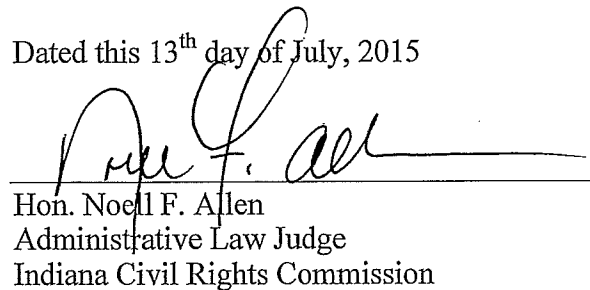 Dated this 13th day of July, 2015
Noell F. Allen
Hon. Noell F. Allen
Administrative Law Judge
Indiana Civil Rights Commission